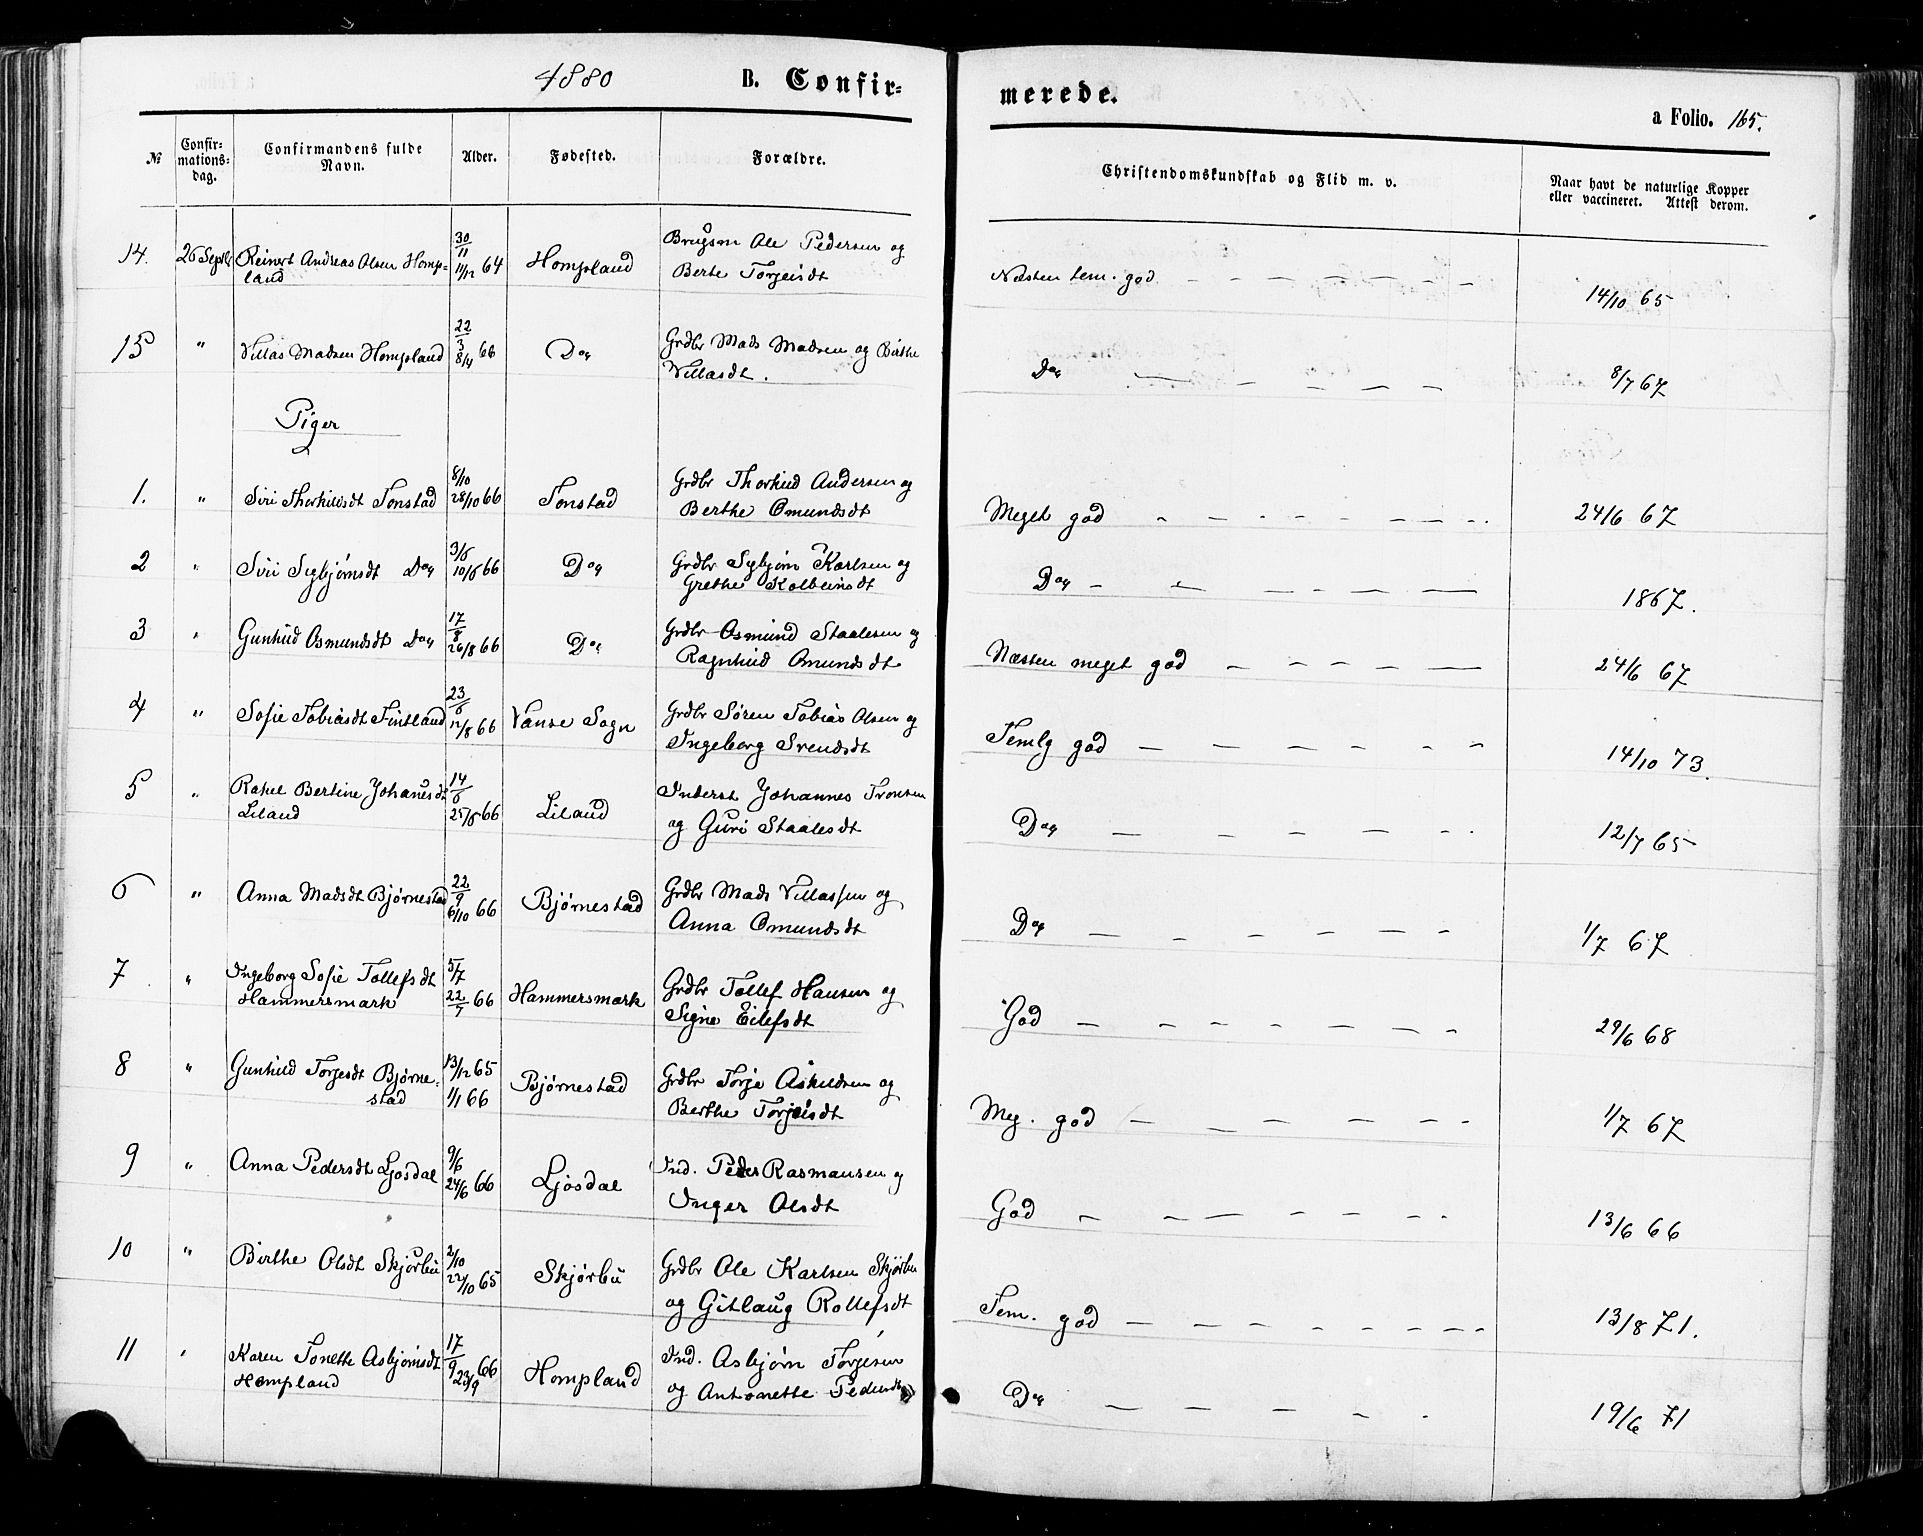 1880 B. Confir= merede.
a Folio. 165.
№ Confir-mations-dag. Confirmandens fulde Navn. Alder. Fødested. Forældre. Christendomskundskab og Flid m. v. Naar havt de naturlige Kopper eller vaccineret. Attest derom.
14. 26 Septbr Reinert Andreas Olsen Homp= 30/11 Hompland Brugsm Ole Pedersen og Næsten tem. god
land 11/12 64 Berte Torjeisdt 14/10 65
15 " Villas Madsen Hompland 22/3 8/4 66 Do Grdbr Mads Madsen og Birthe Do 8/7 67
Villasdt.
Piger
1. " Siri Thorkildsdt Tonstad 8/10 28/10 66 Tonstad Grdbr Thorkild Andersen og Meget god 24/6 67
Berthe Omundsdt
2 " Siri Sigbjørnsdt Do 3/6 10/6 66 Do Grdbr Sigbjørn Karlsen og Do 1867.
Grethe Kolbeinsdt
3 " Gunhild Osmundsdt Do 17/8 26/8 66 Do Grdbr Osmund Staalesen og Næsten meget god 24/6 67
Ragnhild Omundsdt
4 " Sofie Tobiasdt Fintland 23/6 12/8 66 Vanse Sogn Grdbr Søren Tobias Olsen og Temlg god 14/10 73.
Ingeborg Svendsdt
5 " Rakel Bertine Johanesdt 14/6 Liland Inderst Johannes Tronsen Do 12/7 65
Liland 25/6 66 og Guri Staalesdt
6 " Anna Madsdt Bjørnestad 22/9 6/10 66 Bjørnestad Grdbr Mads Villassen og Do 1/7 67
Anna Omundsdt
7 " Ingeborg Sofie Tollefsdt 5/7 Hammersmark Grdbr Tollef Hansen og God 29/6 68
Hammersmark 22/7 66 Signe Eilefsdt
8 " Gunhild Torjesdt Bjørne- 13/12 65 Bjørnestad Grdbr Torje Askildsen og Meg. god 1/7 67
stad 1/1 66 Berthe Torjeisdt
9 " Anna Pedersdt Ljosdal 9/6 24/6 66 Ljosdal Ind. Peder Rasmausen og God 13/6 66
Inger Olsdt
10 " Birthe Olsdt Skjørbu 2/10 22/10 65 Skjørbu Grdbr Ole Karlsen Skjørbu Tem. god 13/8 71.
og Gitlaug Rollefsdt
11 " Karen Tonette Asbjørnsdt 17/9 Hompland Ind. Asbjørn Torjesen Do 19/6 71
Hompland 23/9 66 og Antonette Pedersdt